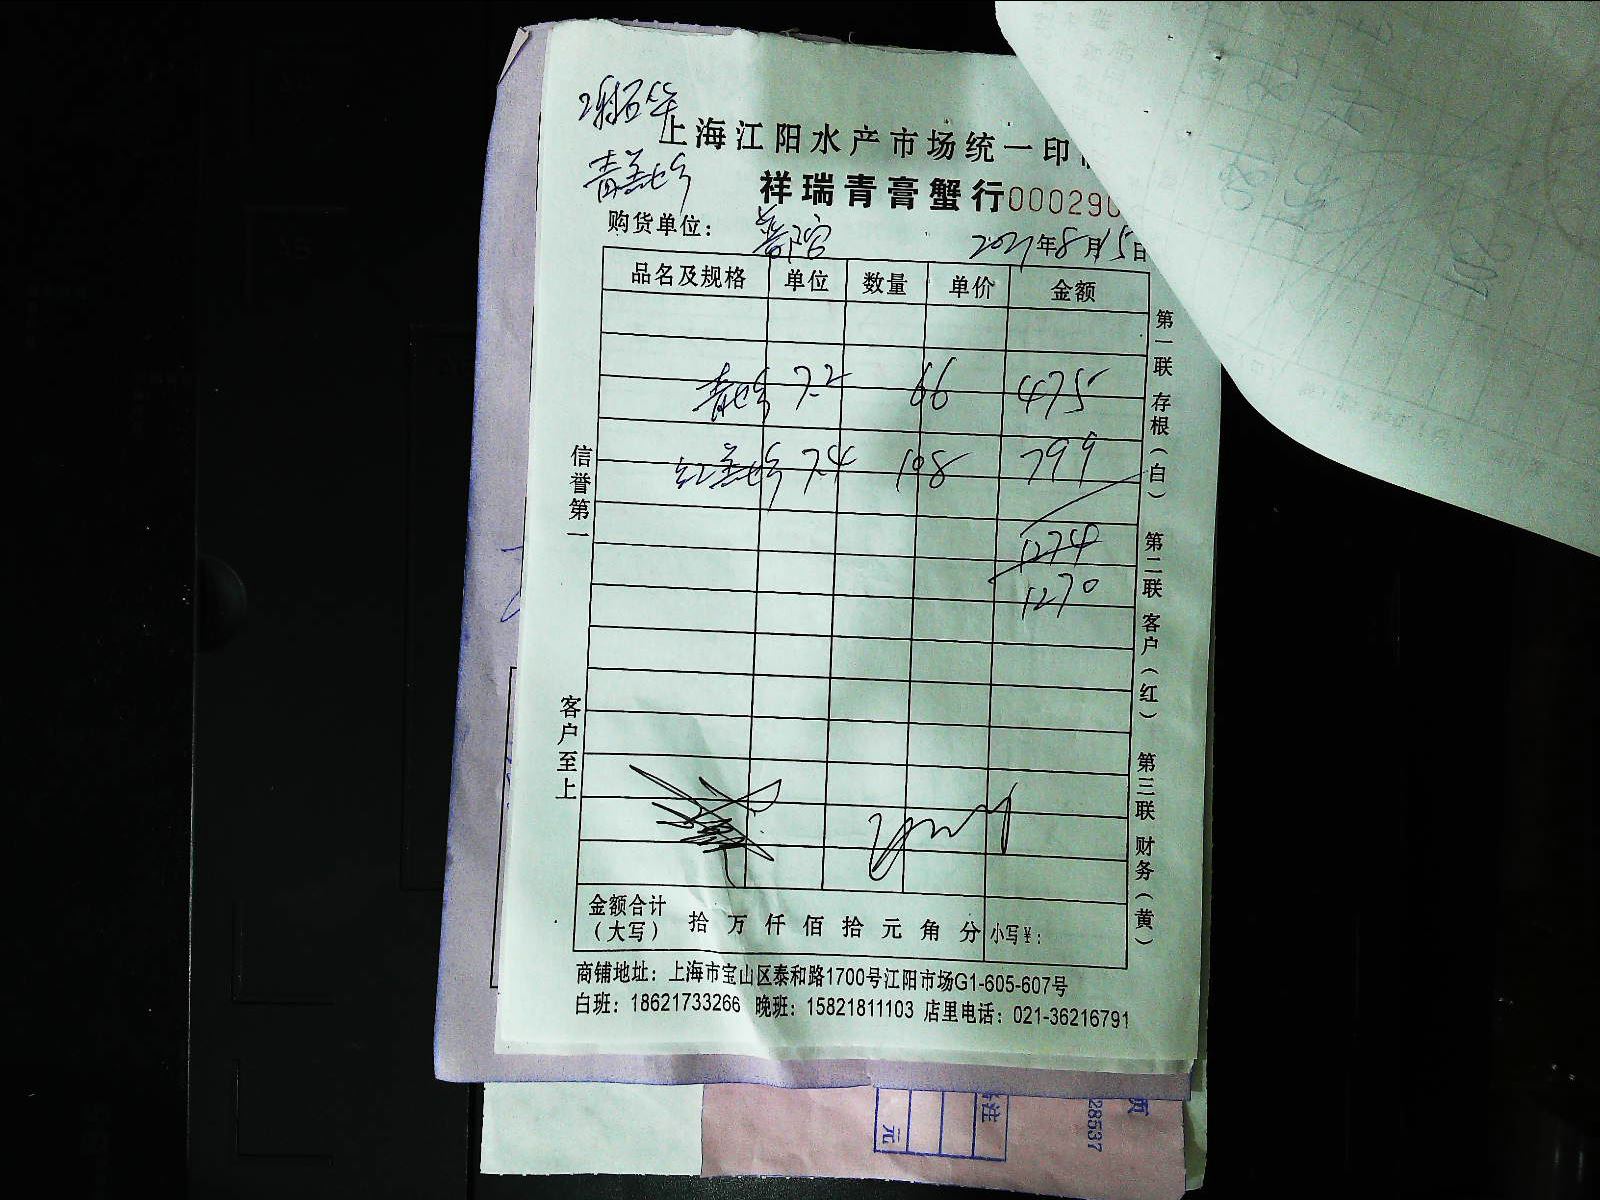 上海江阳水产市场统一印
祥瑞青膏蟹行 000290
购货单位:
2021年8月15日
品名及规格 单位 数量 单价 金额
7.2 66 475
7.4 108 799
1274
1270
金额合计（大写） 拾 万 仟 佰 拾 元 角 分 小写¥:
商铺地址：上海市宝山区泰和路1700号江阳市场G1-605-607号
白班：18621733266 晚班：15821811103 店里电话：021-36216791
信誉第一
客户至上
第一联 存根（白）
第二联 客户（红）
第三联 财务（黄）
元
28537
页